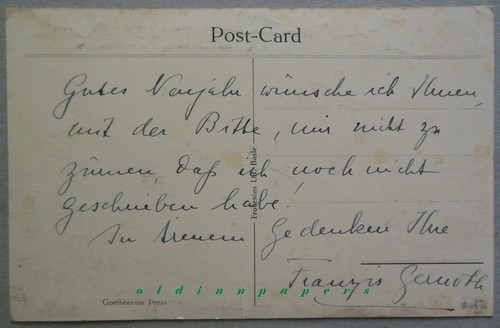 Post-Card
Gutes Neujahr wünsche ich Ihnen,
mit der Bitte, mir nicht zu
zürnen, daß ich noch nicht
geschrieben habe!
In treuem Gedenken Ihre
Frobenius Ltd. Basle
oldinnpapers
Goetheanum Press